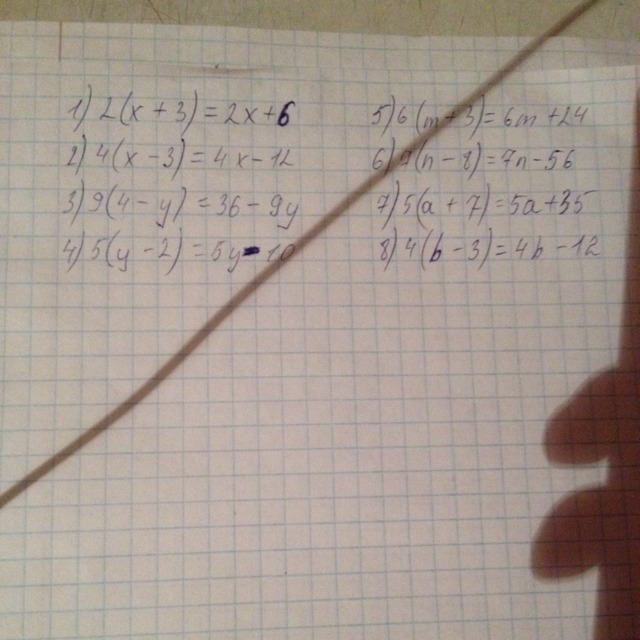 1) 2(x + 3) = 2x + 6
2) 4(x - 3) = 4x - 12
3) 9(4 - y) = 36 - 9y
4) 5(y - 2) = 5y - 10
5) 6(m + 3) = 6m + 24
6) 7(n - 8) = 7n - 56
7) 5(a + 7) = 5a + 35
8) 4(b - 3) = 4b - 12